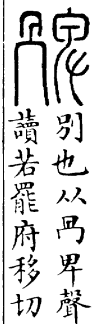 別也从冎卑聲
讀若罷府移切